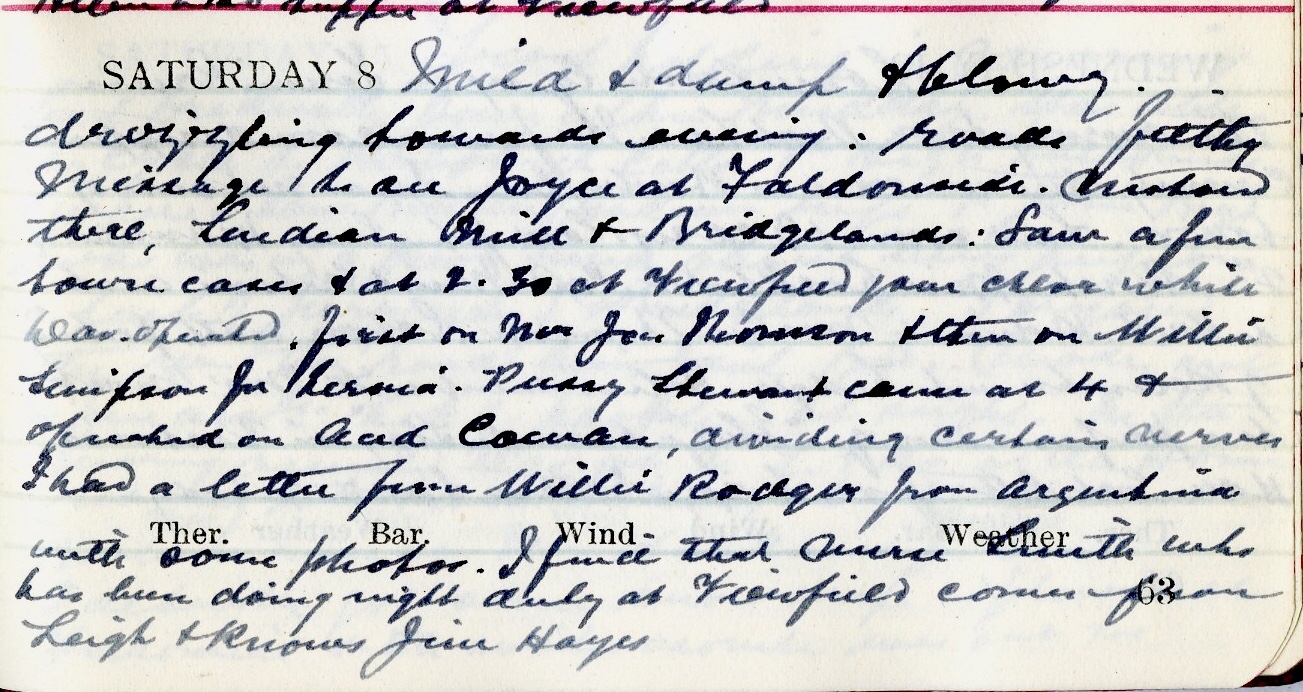 at Viewfield
SATURDAY 8 Mild & damp & blowy.
drizzling towards evening: roads filthy
Message to see Joyce at Faldonside.
there, Lindean Mill & Bridgelands: Saw a few
town cases & at 2.30 at Viewfield gave chlor while
Dav. operated, first on Mrs Jas Thomson & then on Willie
Simpson for hernia. Pussy Stewart came at 4 &
operated on Aud Cowan, dividing certain nerves
I had a letter from Willie Rodger from Argentina
Ther. Bar. Wind Weather
with some photos. I find that Nurse Smith who
has been doing night duty at Viewfield comes from
63
Leigh & knows Jim Hayes